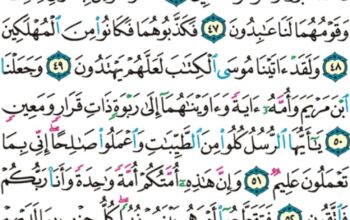 وَقَوْمُهُمَا لَنَا عَـٰبِدُونَ ٤٧ فَكَذَّبُوهُمَا فَكَانُوا۟ مِنَ ٱلْمُهْلَكِينَ
٤٨ وَلَقَدْ ءَاتَيْنَا مُوسَى ٱلْكِتَـٰبَ لَعَلَّهُمْ يَهْتَدُونَ ٤٩ وَجَعَلْنَا
ٱبْنَ مَرْيَمَ وَأُمَّهُۥٓ ءَايَةً وَءَاوَيْنَـٰهُمَآ إِلَىٰ رَبْوَةٍ ذَاتِ قَرَارٍ وَمَعِينٍ
٥٠ يَـٰٓأَيُّهَا ٱلرُّسُلُ كُلُوا۟ مِنَ ٱلطَّيِّبَـٰتِ وَٱعْمَلُوا۟ صَـٰلِحًا إِنِّى بِمَا
تَعْمَلُونَ عَلِيمٌ ٥١ وَإِنَّ هَـٰذِهِۦٓ أُمَّتُكُمْ أُمَّةً وَٰحِدَةً وَأَنَا۠ رَبُّكُمْ